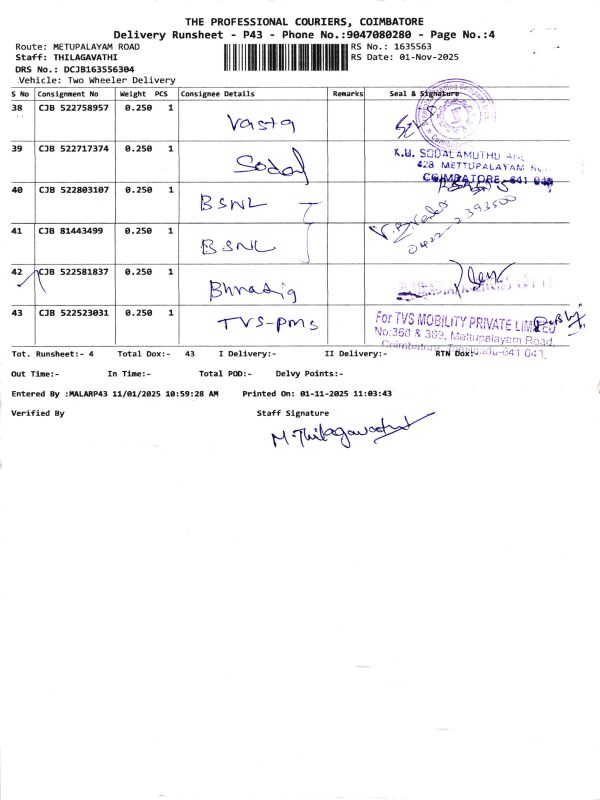 THE PROFESSIONAL COURIERS, COIMBATORE
Delivery Runsheet - P43 - Phone No.:9047080280 - Page No.:4
Route: METUPALAYAM ROAD RS No.: 1635563
Staff: THILAGAVATHI RS Date: 01-Nov-2025
DRS No.: DCJB163556304
Vehicle: Two Wheeler Delivery
S No Consignment No Weight PCS Consignee Details Remarks Seal & Signature
38 CJB 522758957 0.250 1 Vasta
39 CJB 522717374 0.250 1 Sodal
K.U. SODALAMUTHU AND
428 METTUPALAYAM
COIMBATORE-641
40 CJB 522803107 0.250 1 BSNL
41 CJB 81443499 0.250 1 BSNL
0422-2393500
42 CJB 522581837 0.250 1
43 CJB 522523031 0.250 1 TVS-PMS
For TVS MOBILITY PRIVATE LIMITED
No:368 & 369, Mettupalayam Road,
Coimbatore, Tamilnadu-641 043.
Tot. Runsheet:- 4 Total Dox:- 43 I Delivery:- II Delivery:- RTN Dox:-
Out Time:- In Time:- Total POD:- Delvy Points:-
Entered By :MALARP43 11/01/2025 10:59:28 AM Printed On: 01-11-2025 11:03:43
Verified By Staff Signature
M.Thilagavathi